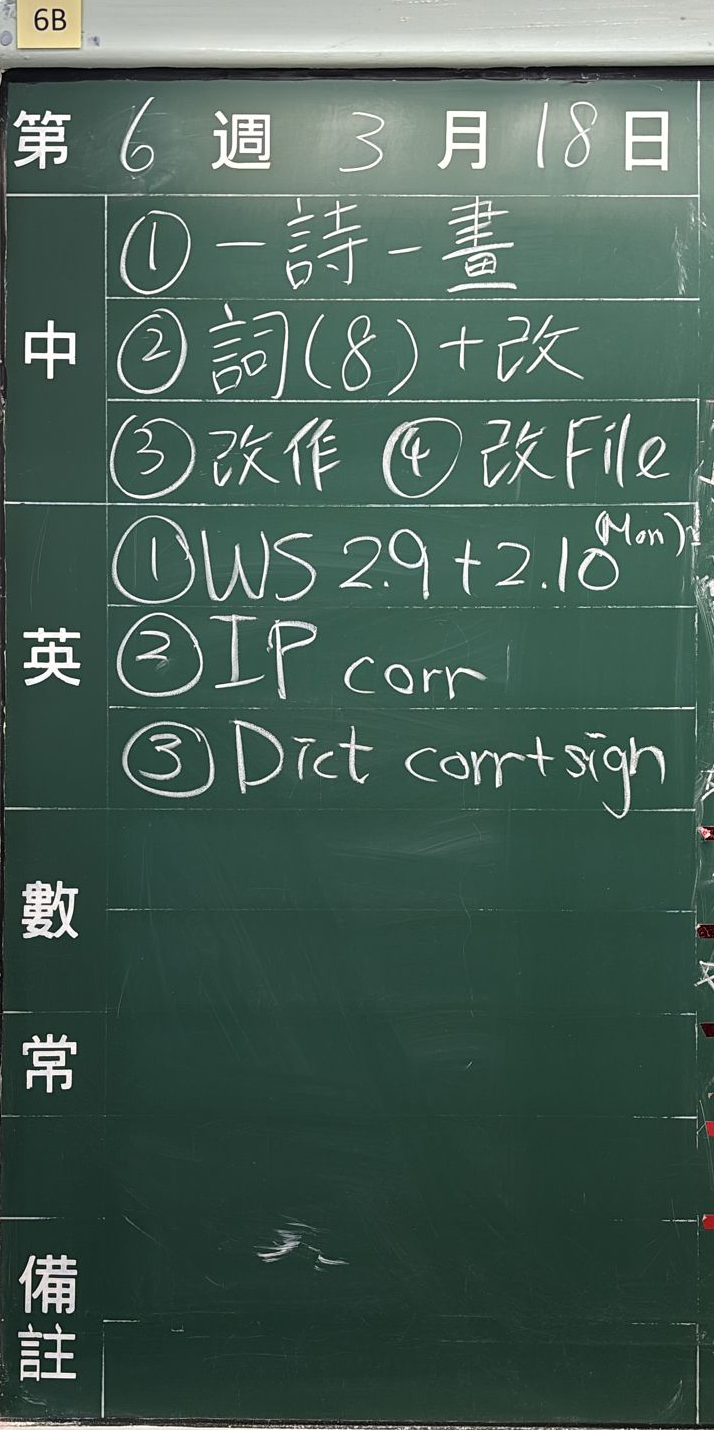 6B
第 6 週 3 月 18 日
中
① 一詩一畫
② 詞(8)+改
③ 改作 ④ 改File
英
① WS 2.9+2.10 (Mon)
② IP corr
③ Dict corr+sign
數
常
備註